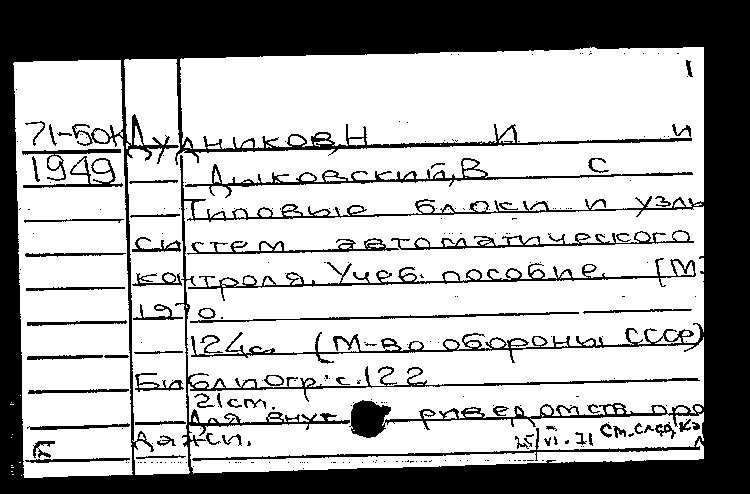 1
71-60к Дудников, Н И и
1949 Дыковский, В С
Типовые блоки и узлы
систем автоматического
контроля. Учеб. пособие. [М.]
1970.
124с. (М-во обороны СССР)
Библиогр.: с.122
21cm.
Для внут риведомств. про
дажи.
25/VI-71 См. след. ка